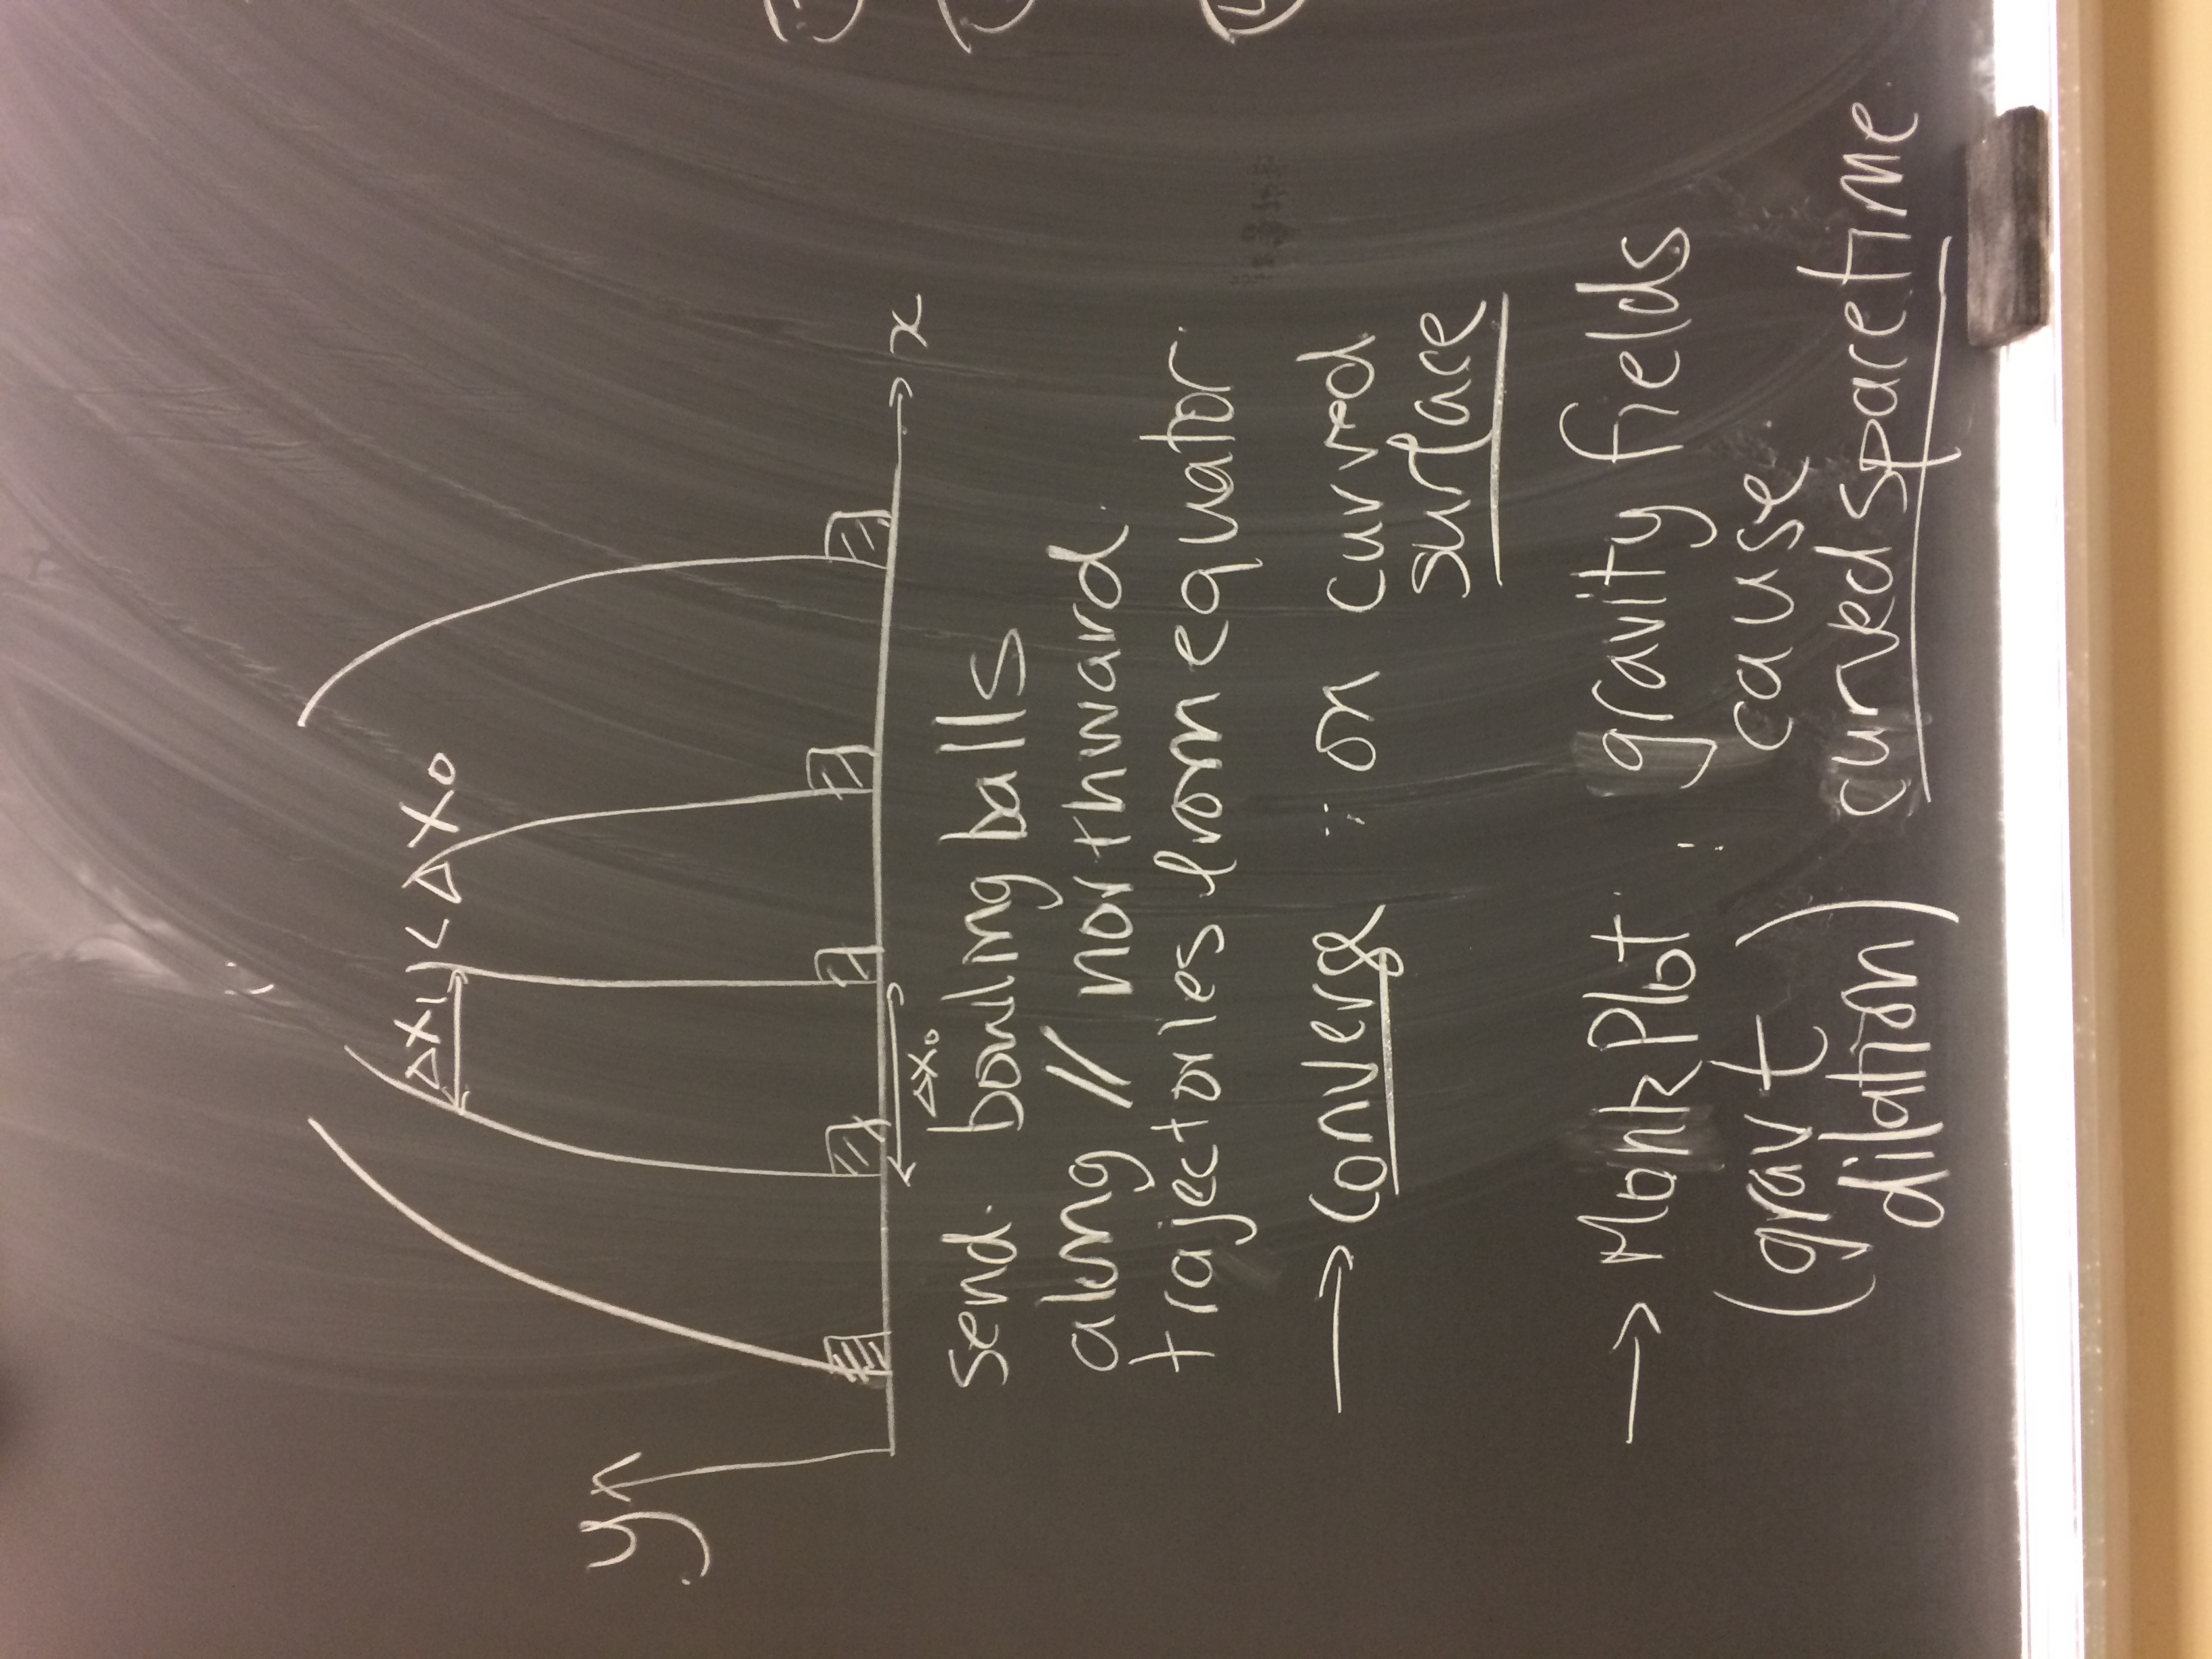 y
x
Δx₁ < Δx₀
Δx₀
Send bowling balls
along // northward
trajectories from equator
→ Converge ∵ on curved
surface
→ Mbnkplbt ∵ gravity fields
(grav t cause
dilation) curved spacetime